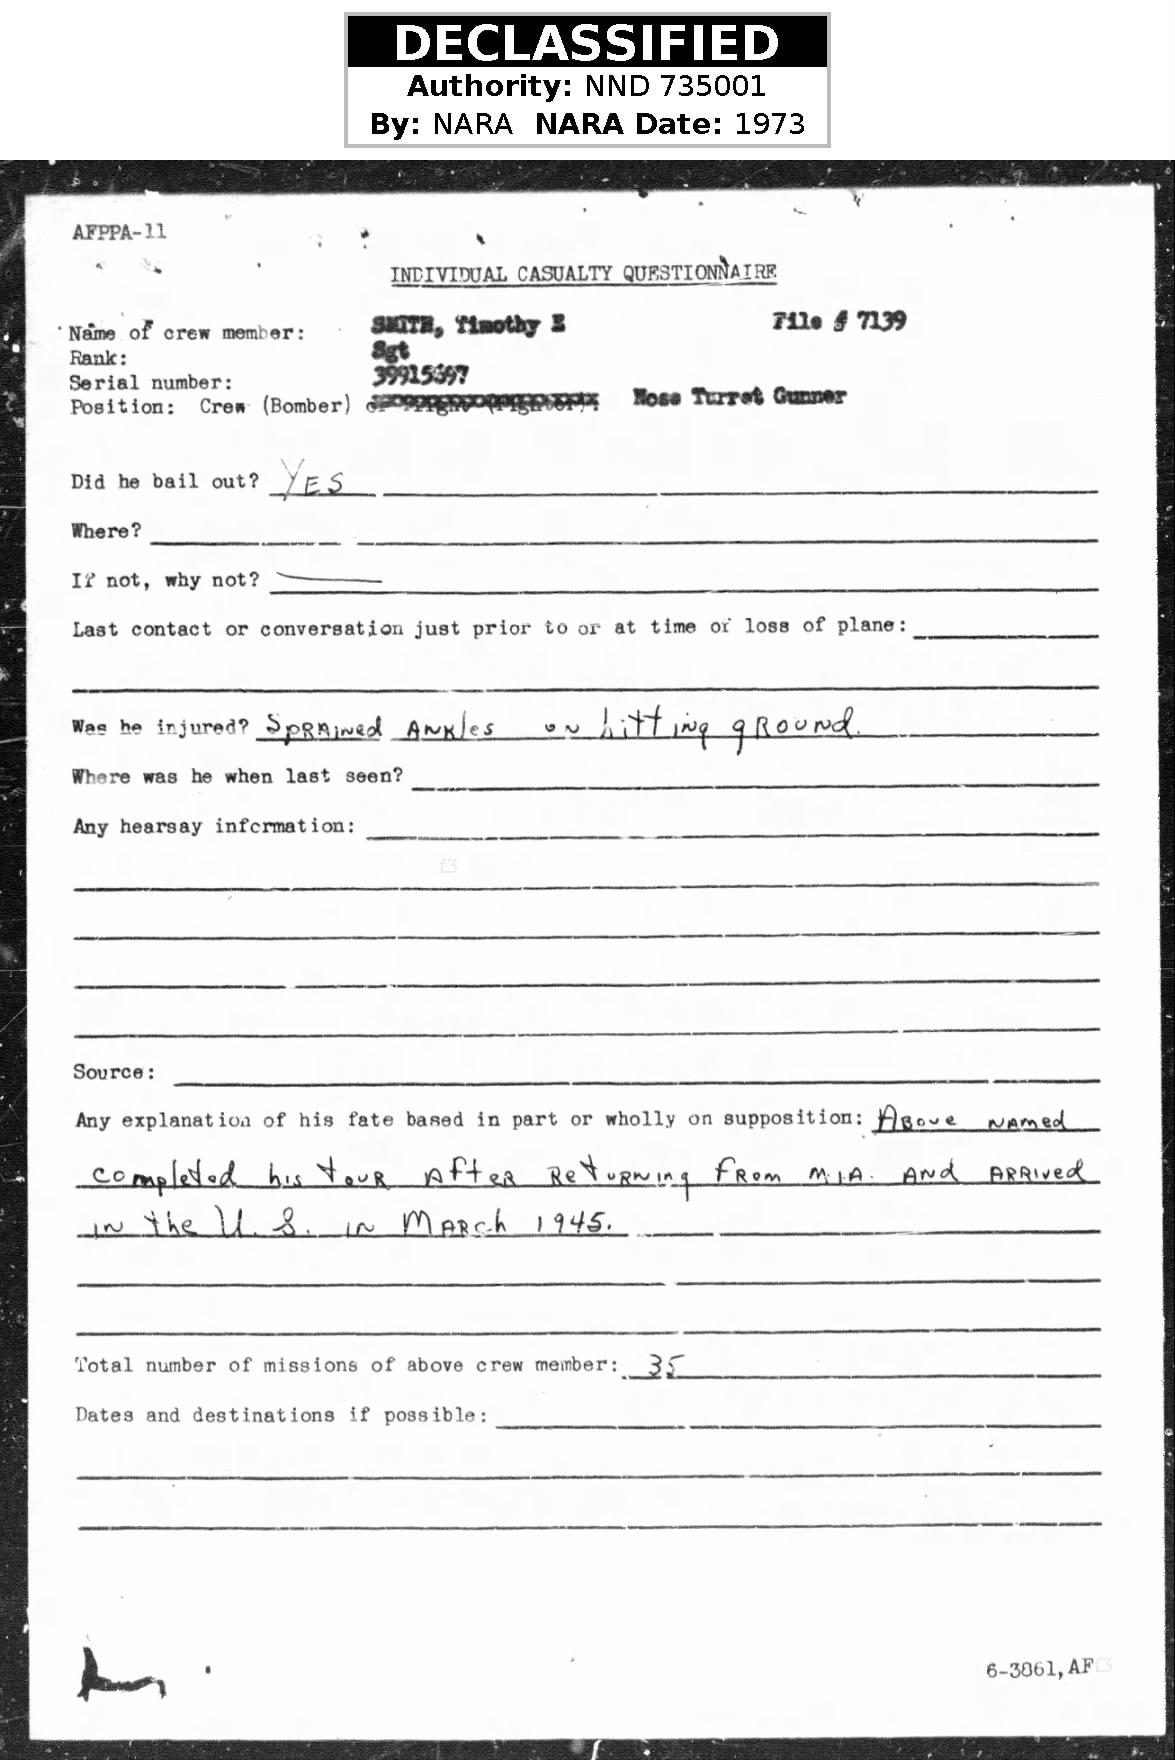 DECLASSIFIED
Authority: NND 735001
By: NARA NARA Date: 1973
AFPPA-11
INDIVIDUAL CASUALTY QUESTIONNAIRE
Name of crew member: SMITH, Timothy E File # 7139
Rank: Sgt
Serial number:
Position: Crew (Bomber) Nose Turret Gunner
Did he bail out? YES
Where?
If not, why not?
Last contact or conversation just prior to or at time of loss of plane:
Was he injured? Sprained Ankles on hitting ground.
Where was he when last seen?
Any hearsay information:
Source:
Any explanation of his fate based in part or wholly on supposition: Above named
completed his tour after returning from M.I.A. and arrived
in the U. S. in March 1945.
Total number of missions of above crew member: 35
Dates and destinations if possible:
6-3861, AF